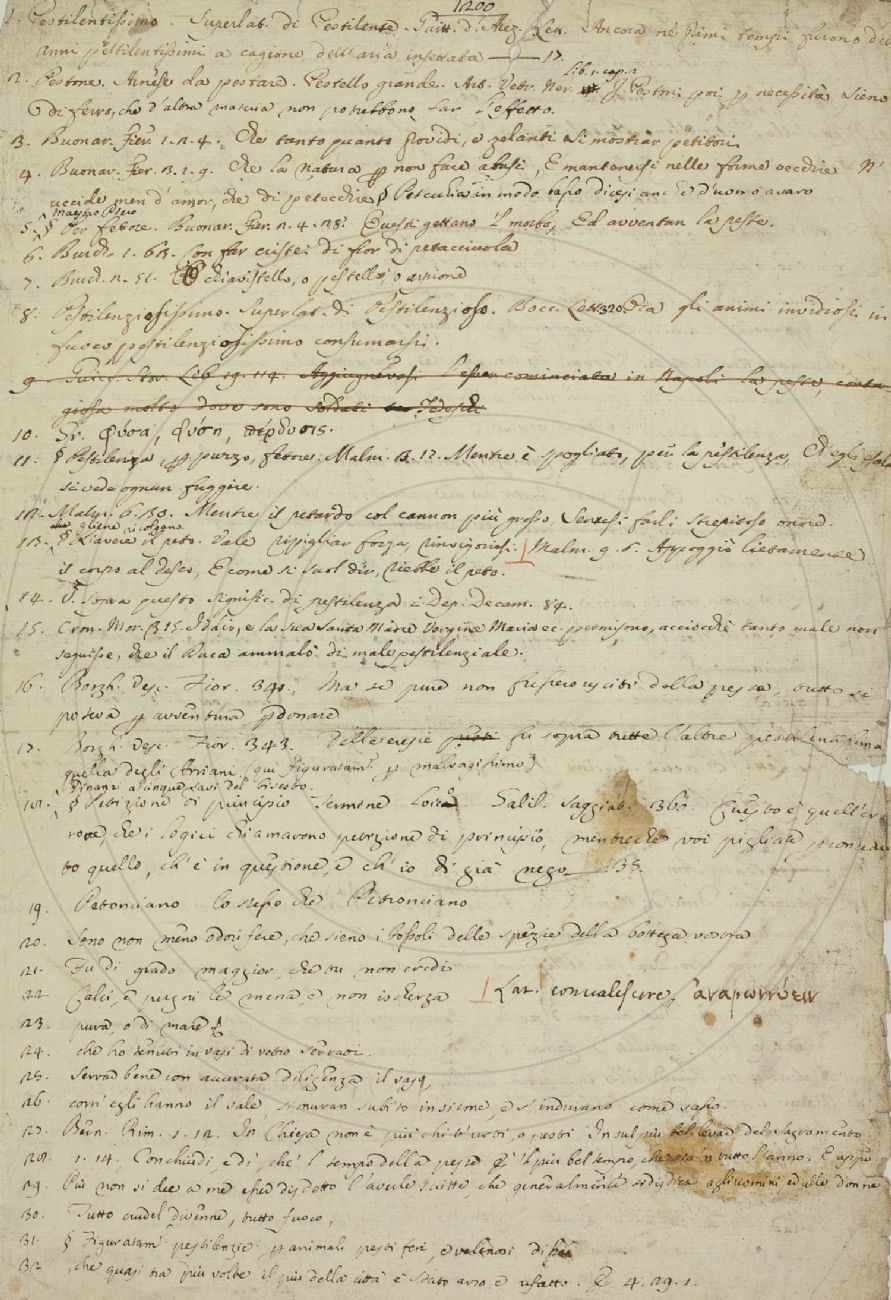 1200
1. Pestilentissimo. Superlat. di Pestilente. Guitt. d'Arez. Lett. Ancora ne' primi tempi furono del
anni pestilentissimi a cagione dell'aria infettata 17.
Lib. 1. cap. 2
2. Pestone. Arnese da pestare. Pestello grande. Art. Vetr. Ner. I Pestoni poi per necessità sieno
di ferro, che d'altra materia non potrebbono far l'effetto.
3. Buonar. Fier. 1. 2. 4. Che tanto quanto providi, e zelanti Si mostrar petitori.
4. Buonar. Fier. 3. 1. 9. Che la natura per non fare abusi, E mantenersi nelle forme vecchie N'
uccide men d'amor, che di petecchie § Petecchia in modo basso dicesi anc. d'uomo avaro
5. § Per fetore. Buonar. Fier. 2. 4. 28. Questi gettano 'l morbo, Ed avventan la peste.
6. Burch. 1. 63. Son far cristei di fior di petacciuola
7. Burch. 2. 51. chiavistello, o pestello, o arpione
8. Pestilenziosissimo. Superlat. di Pestilenzioso. Bocc. Lett. 320. Dia gli animi invidiosi in
fuoco pestilenziosissimo consumarsi.
9. Guicc. Stor. Lib. 19. 114. Aggiugnevasi l'esser cominciata in Napoli la peste, conta
giosa molto dove sono soldati Tedeschi
10. Gr. φύσα, φύση, πέρδυσις.
11. § Pestilenza, per puzzo, fetore. Malm. 3. 12. Mentre è spogliato, per la pestilenza, Ch'egli esala
si vede ognun fuggire.
12. Malm. 6. 30. Mentre il petardo col cannon più grosso, Sentesi farli strepitoso onore.
13. § Riavere il peto. Vale Ripigliar forza, rinvigorirsi. Malm. 9. 6. Appoggiò lietamente
il corpo al desco, E come si suol dir, riebbe il peto.
14. V. sopra questo signific. di pestilenza i Dep. Decam. 84.
15. Cron. Mor. 315. Iddio, e la Sua Santa Madre Vergine Maria ec. permisono, acciocchè tanto male non
seguisse, che il Duca ammalò di male pestilenziale.
16. Borgh. Vesc. Fior. 340. Ma se pure non fussero usciti della pesta, tutto si
poteva per avventura perdonare
17. Borgh. Vesc. Fior. 343. Delle eresie fu sopra tutte l'altre pestilentissima
quella degli Arriani (qui figuratam. per malvagissimo)
18. § Petizione di principio Termine Loico. Galil. Saggiat. 360. Questo è quell'er
rore, che i logici chiamarono petizione di principio, mentrechè voi pigliate per conceduto
to quello, ch'è in questione, e ch'io di già nego 135.
19. Petonciano lo stesso che Petronciano
20. Sono non meno odorifere, che sieno i bossoli delle spezie della bottega vostra
21. Fu di grado maggior, che tu non credi
22. Calci, e pugni le mena, e non ischerza Lat. convalescere, ἀναρρωννύειν
23. pura, o di mare
24. che ho tenuti in vasi di vetro serrati.
25. Serra bene con accurata diligenza il vaso
26. com'egli hanno il sale, si muran subito insieme, e s'indurano come sasso.
27. Bern. Rim. 1. 12. In Chiesa non è più chi t'urti, o pesti In sul più bel levar del Sagramento
28. 1. 14. Conchiudi, e di', che 'l tempo della peste È 'l più bel tempo, che sia 'n tutto l'anno. E appo
29. Più non si dee a me esser disdetto l'averle scritte, che generalmente si disdica agli uomini ed alle donne
30. Tutto crudel divenne, tutto fuoco,
31. § Figuratam. pestilenzie per animali pestiferi, e velenosi
32. che quasi tra più volte il più della città è stato arso, e rifatto. 4. 29. 1.